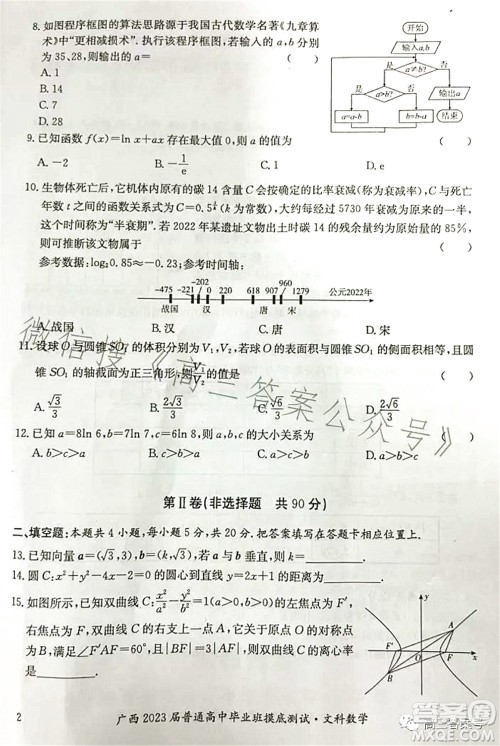 8. 如图程序框图的算法思路源于我国古代数学名著《九章算
术》中“更相减损术”. 执行该程序框图, 若输入的 a, b 分别
为 35、28, 则输出的 a= ( )
A. 1
B. 14
C. 7
D. 28
开始
输入a,b
a≠b?
是 否
a>b?
是 否
输出a
a=a-b b=b-a
结束
9. 已知函数 f(x)=ln x+ax 存在最大值 0, 则 a 的值为 ( )
A. -2 B. -1/e C. 1 D. e
10. 生物体死亡后, 它机体内原有的碳 14 含量 C 会按确定的比率衰减(称为衰减率), C 与死亡
年数 t 之间的函数关系式为 C=0.5^(t/k) (k 为常数), 大约每经过 5730 年衰减为原来的一半, 这
个时间称为“半衰期”. 若 2022 年某遗址文物出土时碳 14 的残余量约为 85%,
可推断该文物属于 ( )
参考数据: log₂0.85≈-0.23; 参考时间轴:
-475 -221 220 618 907 960 1279 公元2022年
战国 汉 唐 宋
A. 战国 B. 汉 C. 唐 D. 宋
11. 设球 O 与圆锥 SO₁ 的体积分别为 V₁, V₂, 若球 O 的表面积与圆锥 SO₁ 的侧面积相等, 且圆
锥 SO₁ 的轴截面为正三角形, 则 V₁/V₂ 的值是 ( )
A. √3/2 B. 2√3/3 C. √6/3 D. 2√6/3
12. 已知 a=8ln 6, b=7ln 7, c=6ln 8, 则 a, b, c 的大小关系为 ( )
A. b>c>a B. c>b>a C. a>c>b D. a>b>c
第Ⅱ卷(非选择题 共 90 分)
二、填空题: 本题共 4 小题, 每小题 5 分, 共 20 分. 把答案填在答题卡相应位置上.
13. 已知向量 a=(√3,3), b=(k,√3), 若 a 与 b 垂直, 则 k=
14. 圆 C: x²+y²-4x-4y=0 的圆心到直线 y=2x+1 的距离为
15. 如图所示, 已知双曲线 C: x²/a²-y²/b²=1(a>0,b>0) 的左焦点为 F′,
右焦点为 F, 双曲线 C 的右支上一点 A, 它关于原点 O 的对称点
为 B, 满足 ∠F′AF=60°, 且 |BF|=3|AF|, 则双曲线 C 的离心率
是
y
A
F′ O F x
B
2
广西 2023 届普通高中毕业班摸底测试·文科数学
微信搜《高三答案公众号》
高三答案号